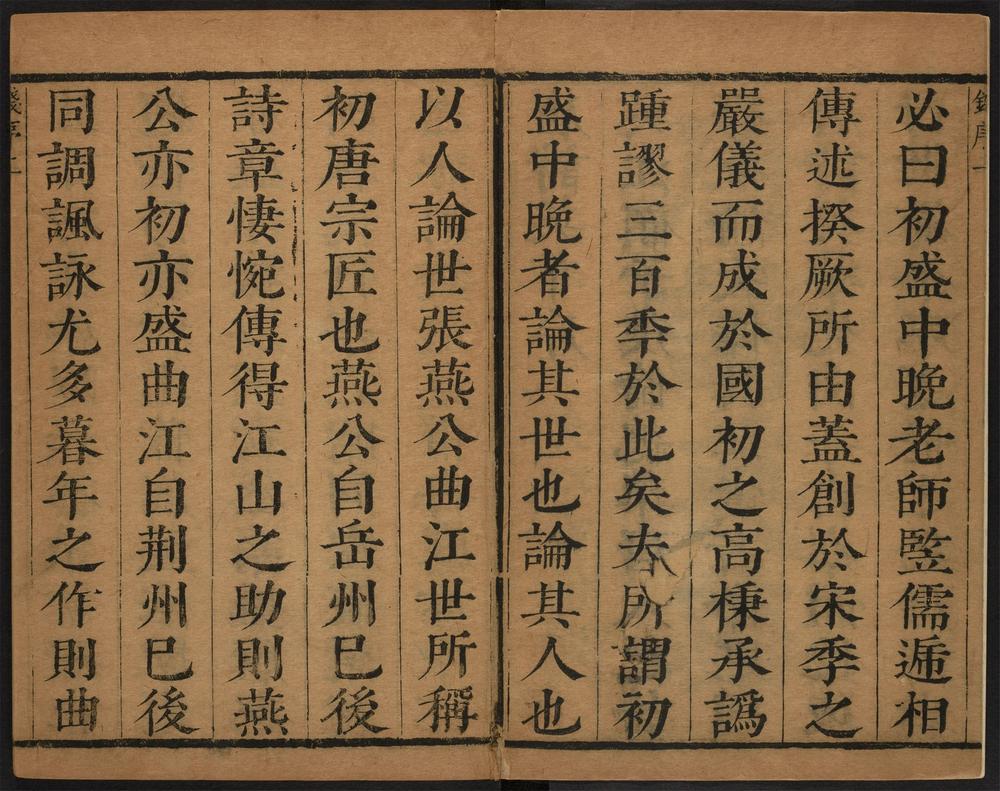 必曰初盛中晚老師竪儒遞相
傳述揆厥所由蓋創於宋季之
嚴儀而成於國初之高棅承譌
踵謬三百季於此矣夫所謂初
盛中晚者論其世也論其人也
以人論世張燕公曲江世所稱
初唐宗匠也燕公自岳州已後
詩章悽惋傳得江山之助則燕
公亦初亦盛曲江自荆州已後
同調諷詠尤多暮年之作則曲